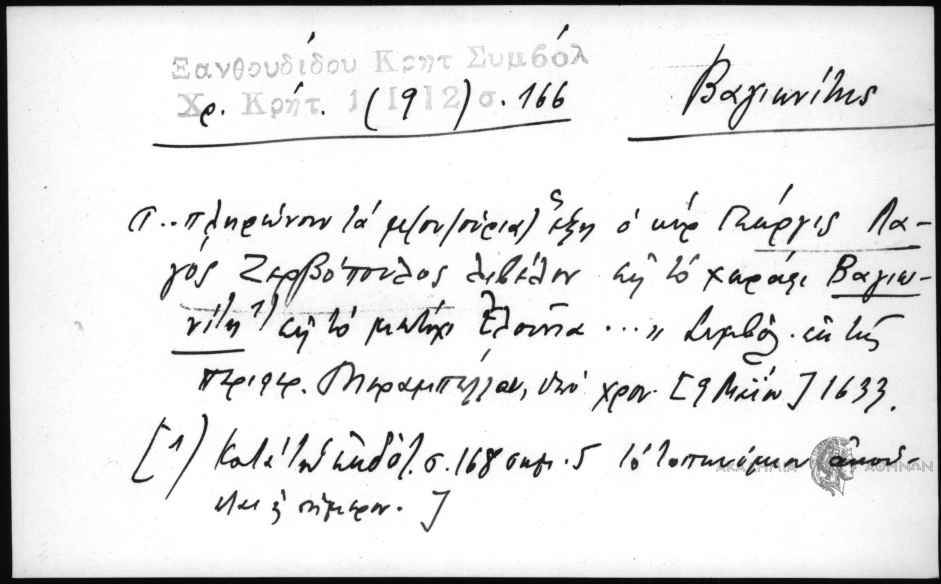 Ξανθουδίδου Κρητ Συμβόλ
Χρ. Κρήτ. 1 (1912) σ. 166
Βαγιωνίτης
".. πληρώνουν τά μ(ου)ζούρια) ἕξη ὁ κύρ Γιώργις Λα-
γός Ζερβόπουλος λιβέλον εἰς τό χωράφι Βαγιω-
νίτη 1) εἰς τό μετόχι Ελούντα ... " Συμβόλ. ἐκ τῆς
περιφερ. Μεραμπέλλου, ὑπό χρον. [9 Μαΐου] 1633.
[1) Κατά τόν ἐκδότ. σ. 168 σημ. 5 τό τοπωνύμιον ἀκού-
εται ἔ σήμερον. ]
ΑΚΑΔΗΜΙΑ ΑΘΗΝΩΝ